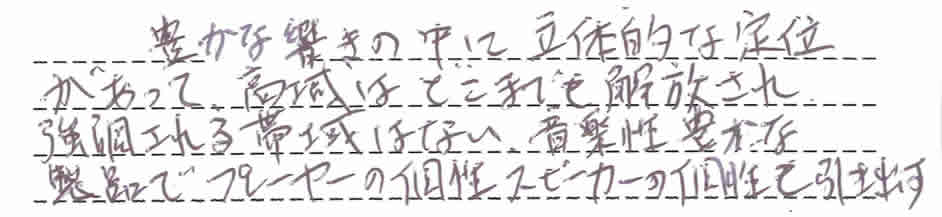 豊かな響きの中に立体的な定位
があって、高域はどこまでも解放され
強調される帯域はない、音楽性豊かな
製品でプレーヤーの個性スピーカーの個性を引き出す